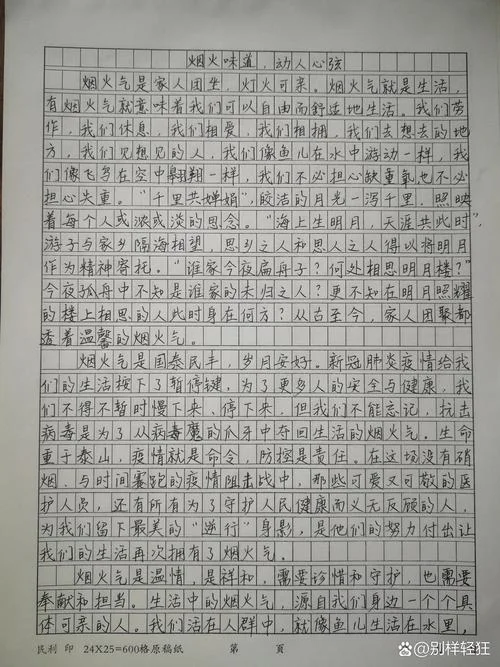 烟火味道，动人心弦
烟火气是家人团坐，灯火可亲。烟火气就是生活，
有烟火气就意味着我们可以自由而舒适地生活。我们劳
作，我们休息，我们相爱，我们相拥，我们去想去的地
方，我们见想见的人，我们像鱼儿在水中游动一样，我
们像飞鸟在空中翱翔一样，我们不必担心缺重氧也不必
担心失重。“千里共婵娟”，皎洁的月光一泻千里，照映
着每个人或浓或淡的思念。“海上生明月，天涯共此时”
游子与家乡隔海相望，思乡之人和思人之人得以将明月
作为精神寄托。“谁家今夜扁舟子？何处相思明月楼？”
今夜孤舟中不知是谁家的未归之人？更不知在明月照耀
的楼上相思的人此时身在何方？从古至今，家人团聚都
透着温馨的烟火气。
烟火气是国泰民丰，岁月安好。新冠肺炎疫情给我
们的生活按下了暂停键，为了更多人的安全与健康，我
们不得不暂时慢下来，停下来，但我们不能忘记，抗击
病毒是为了从病毒魔的爪牙中夺回生活的烟火气。生命
重于泰山，疫情就是命令，防控是责任。在这场没有硝
烟、与时间赛跑的疫情阻击战中，那些可爱又可敬的医
护人员，还有所有为了守护人民健康而义无反顾的人，
为我们留下最美的“逆行”身影，是他们的努力付出让
我们的生活再次拥有了烟火气。
烟火气是温情，是祥和，需要珍惜和守护，也需要
奉献和担当。生活中的烟火气，源自我们身边一个个具
体可亲的人。我们活在人群中，就像鱼儿生活在水里，
民利 印 24X25=600格原稿纸 第 頁
@别样轻狂